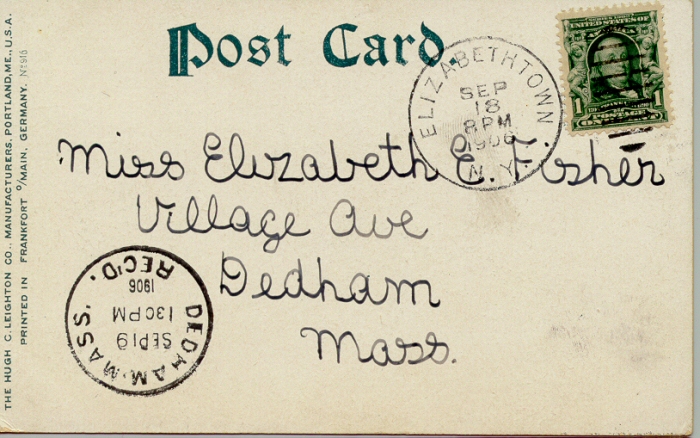 THE HUGH C. LEIGHTON CO., MANUFACTURERS, PORTLAND, ME., U.S.A.
PRINTED IN FRANKFORT o/MAIN, GERMANY. No 915
Post Card.
ELIZABETHTOWN
SEP
18
8 PM
1906
N.Y.
UNITED STATES OF AMERICA
1 1
POSTAGE
ONE CENT
Miss Elizabeth E. Fisher
Village Ave
Dedham
Mass.
DEDHAM, MASS.
SEP 19
130 PM
1906
REC'D.